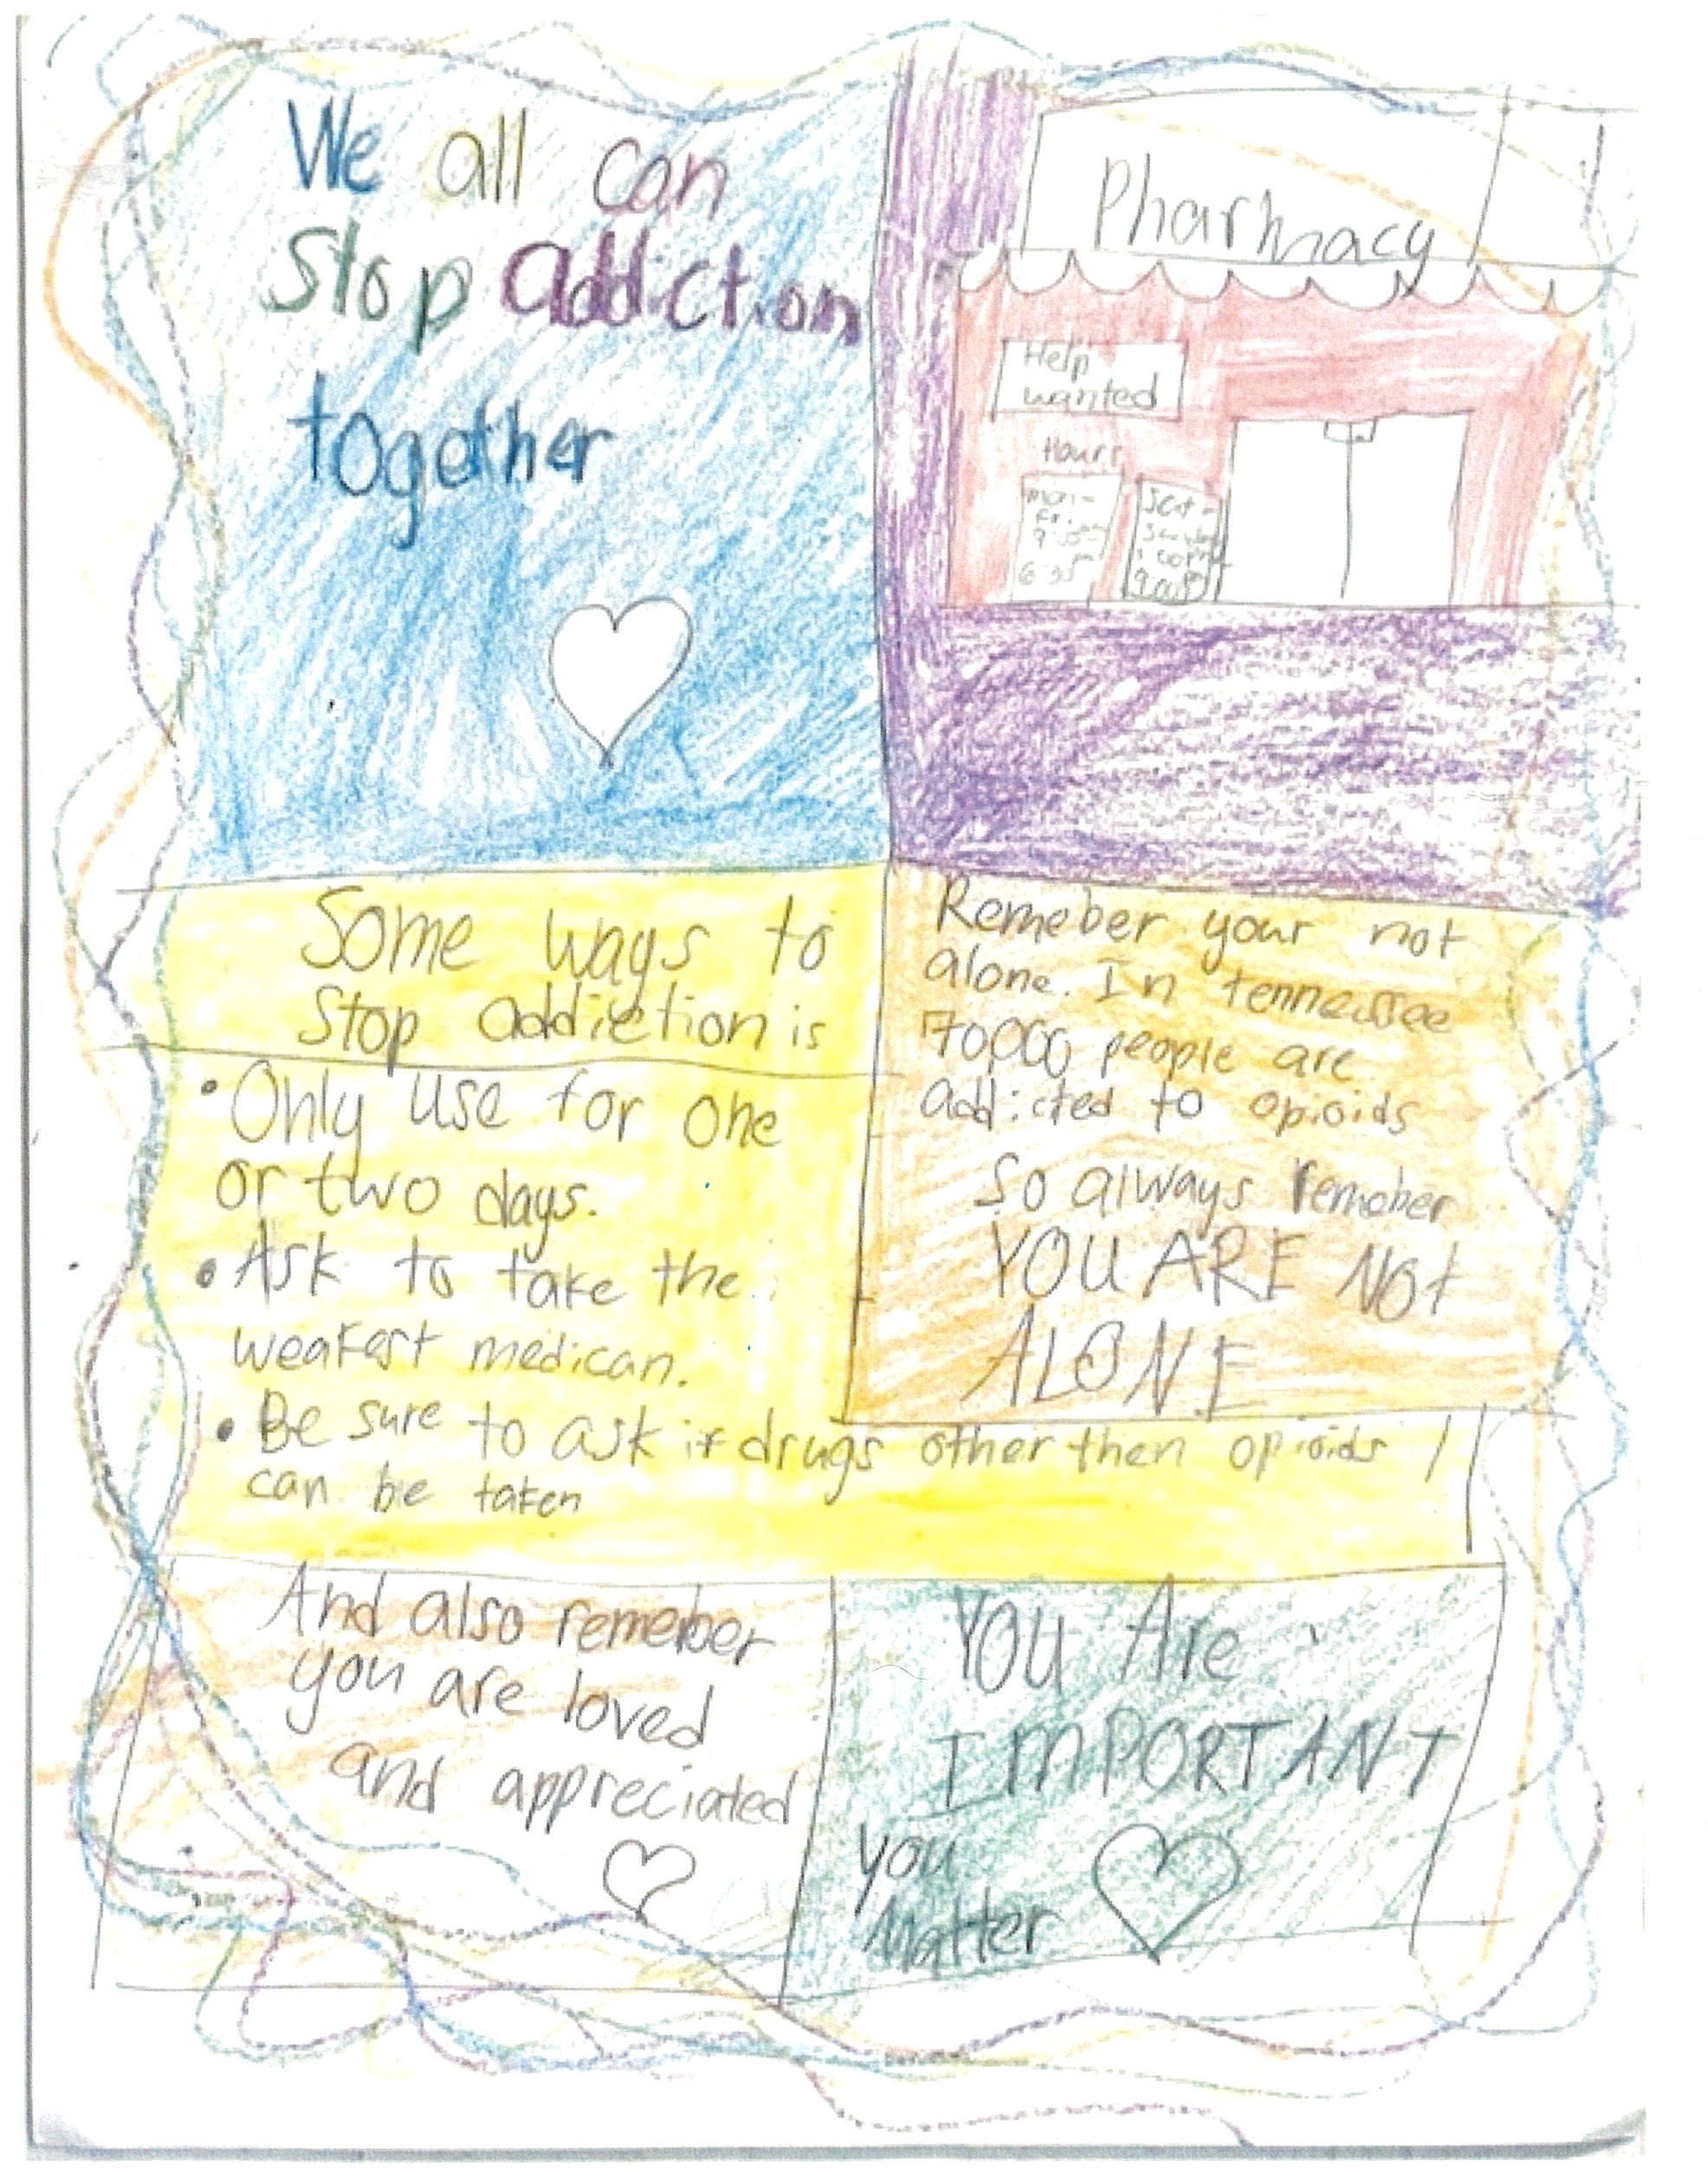 We all can
Stop addiction
together
Pharmacy
Help
wanted
Hours
mon-
fri
Some ways to
Stop addiction is
• Only use for one
or two days.
• Ask to take the
weakest medican.
• Be sure to ask if drugs other then opioids
can be taken
Remeber your not
alone. In tennessee
70,000 people are
addicted to opioids
So always remeber
YOU ARE Not
ALONE
And also remeber
you are loved
and appreciated
YOU Are
IMPORTANT
you
Matter